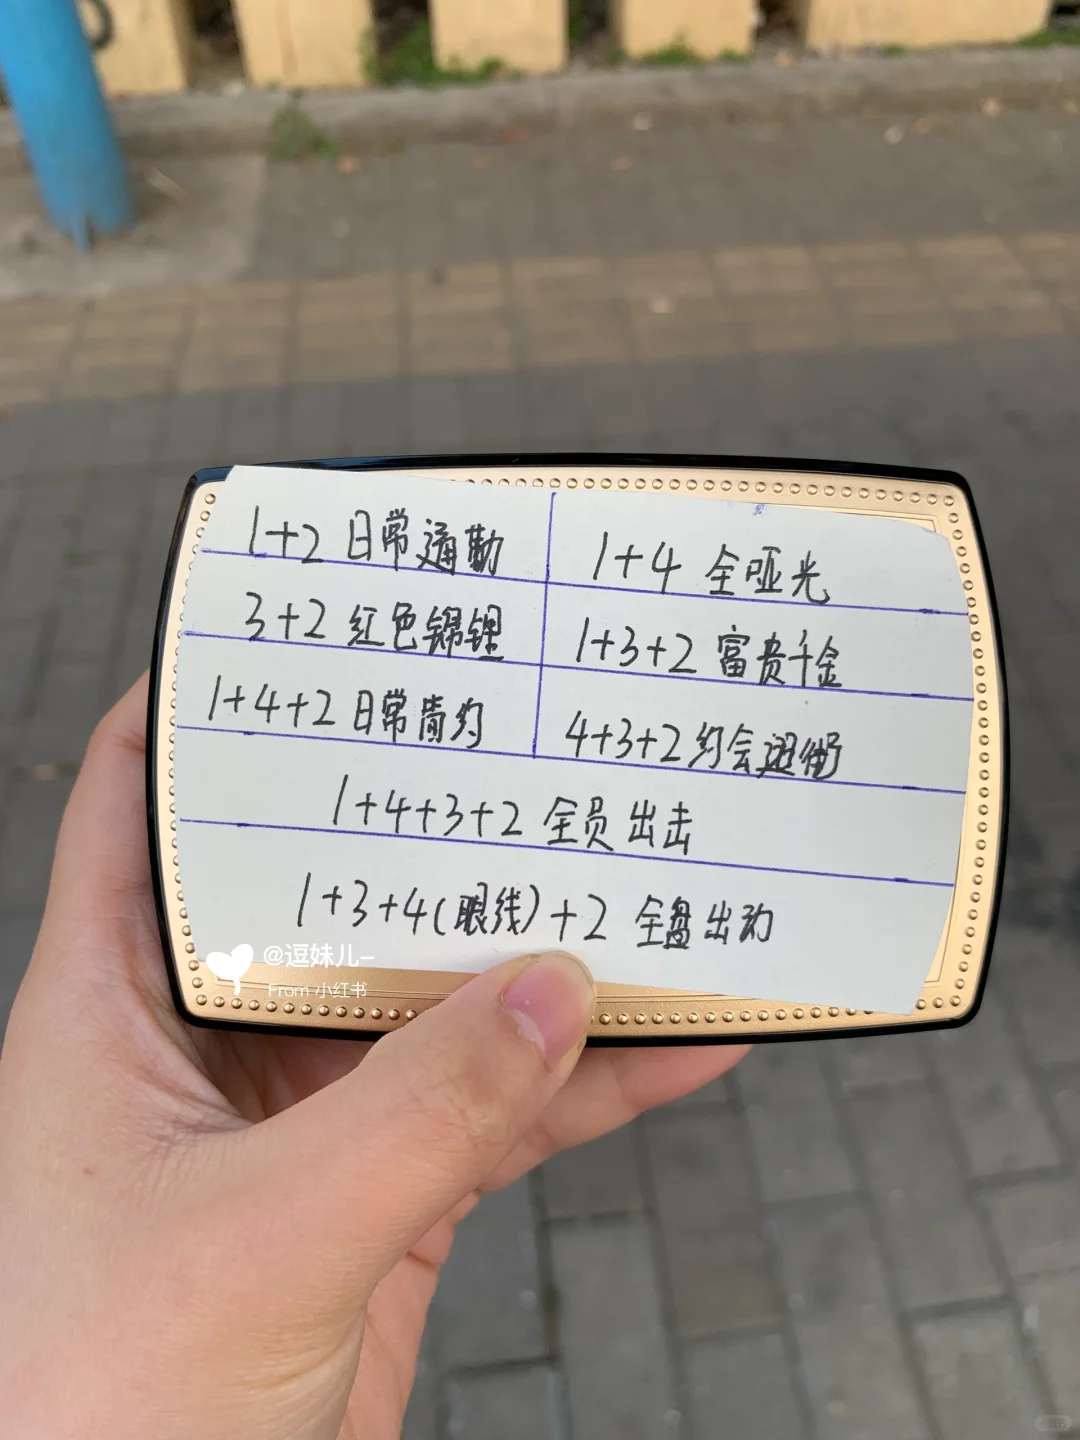 1+2 日常通勤
1+4 全哑光
3+2 红色锦鲤
1+3+2 富贵千金
1+4+2 日常简约
4+3+2 约会逛街
1+4+3+2 全员出击
1+3+4(眼线)+2 全盘出动
@逗妹儿–
From 小红书